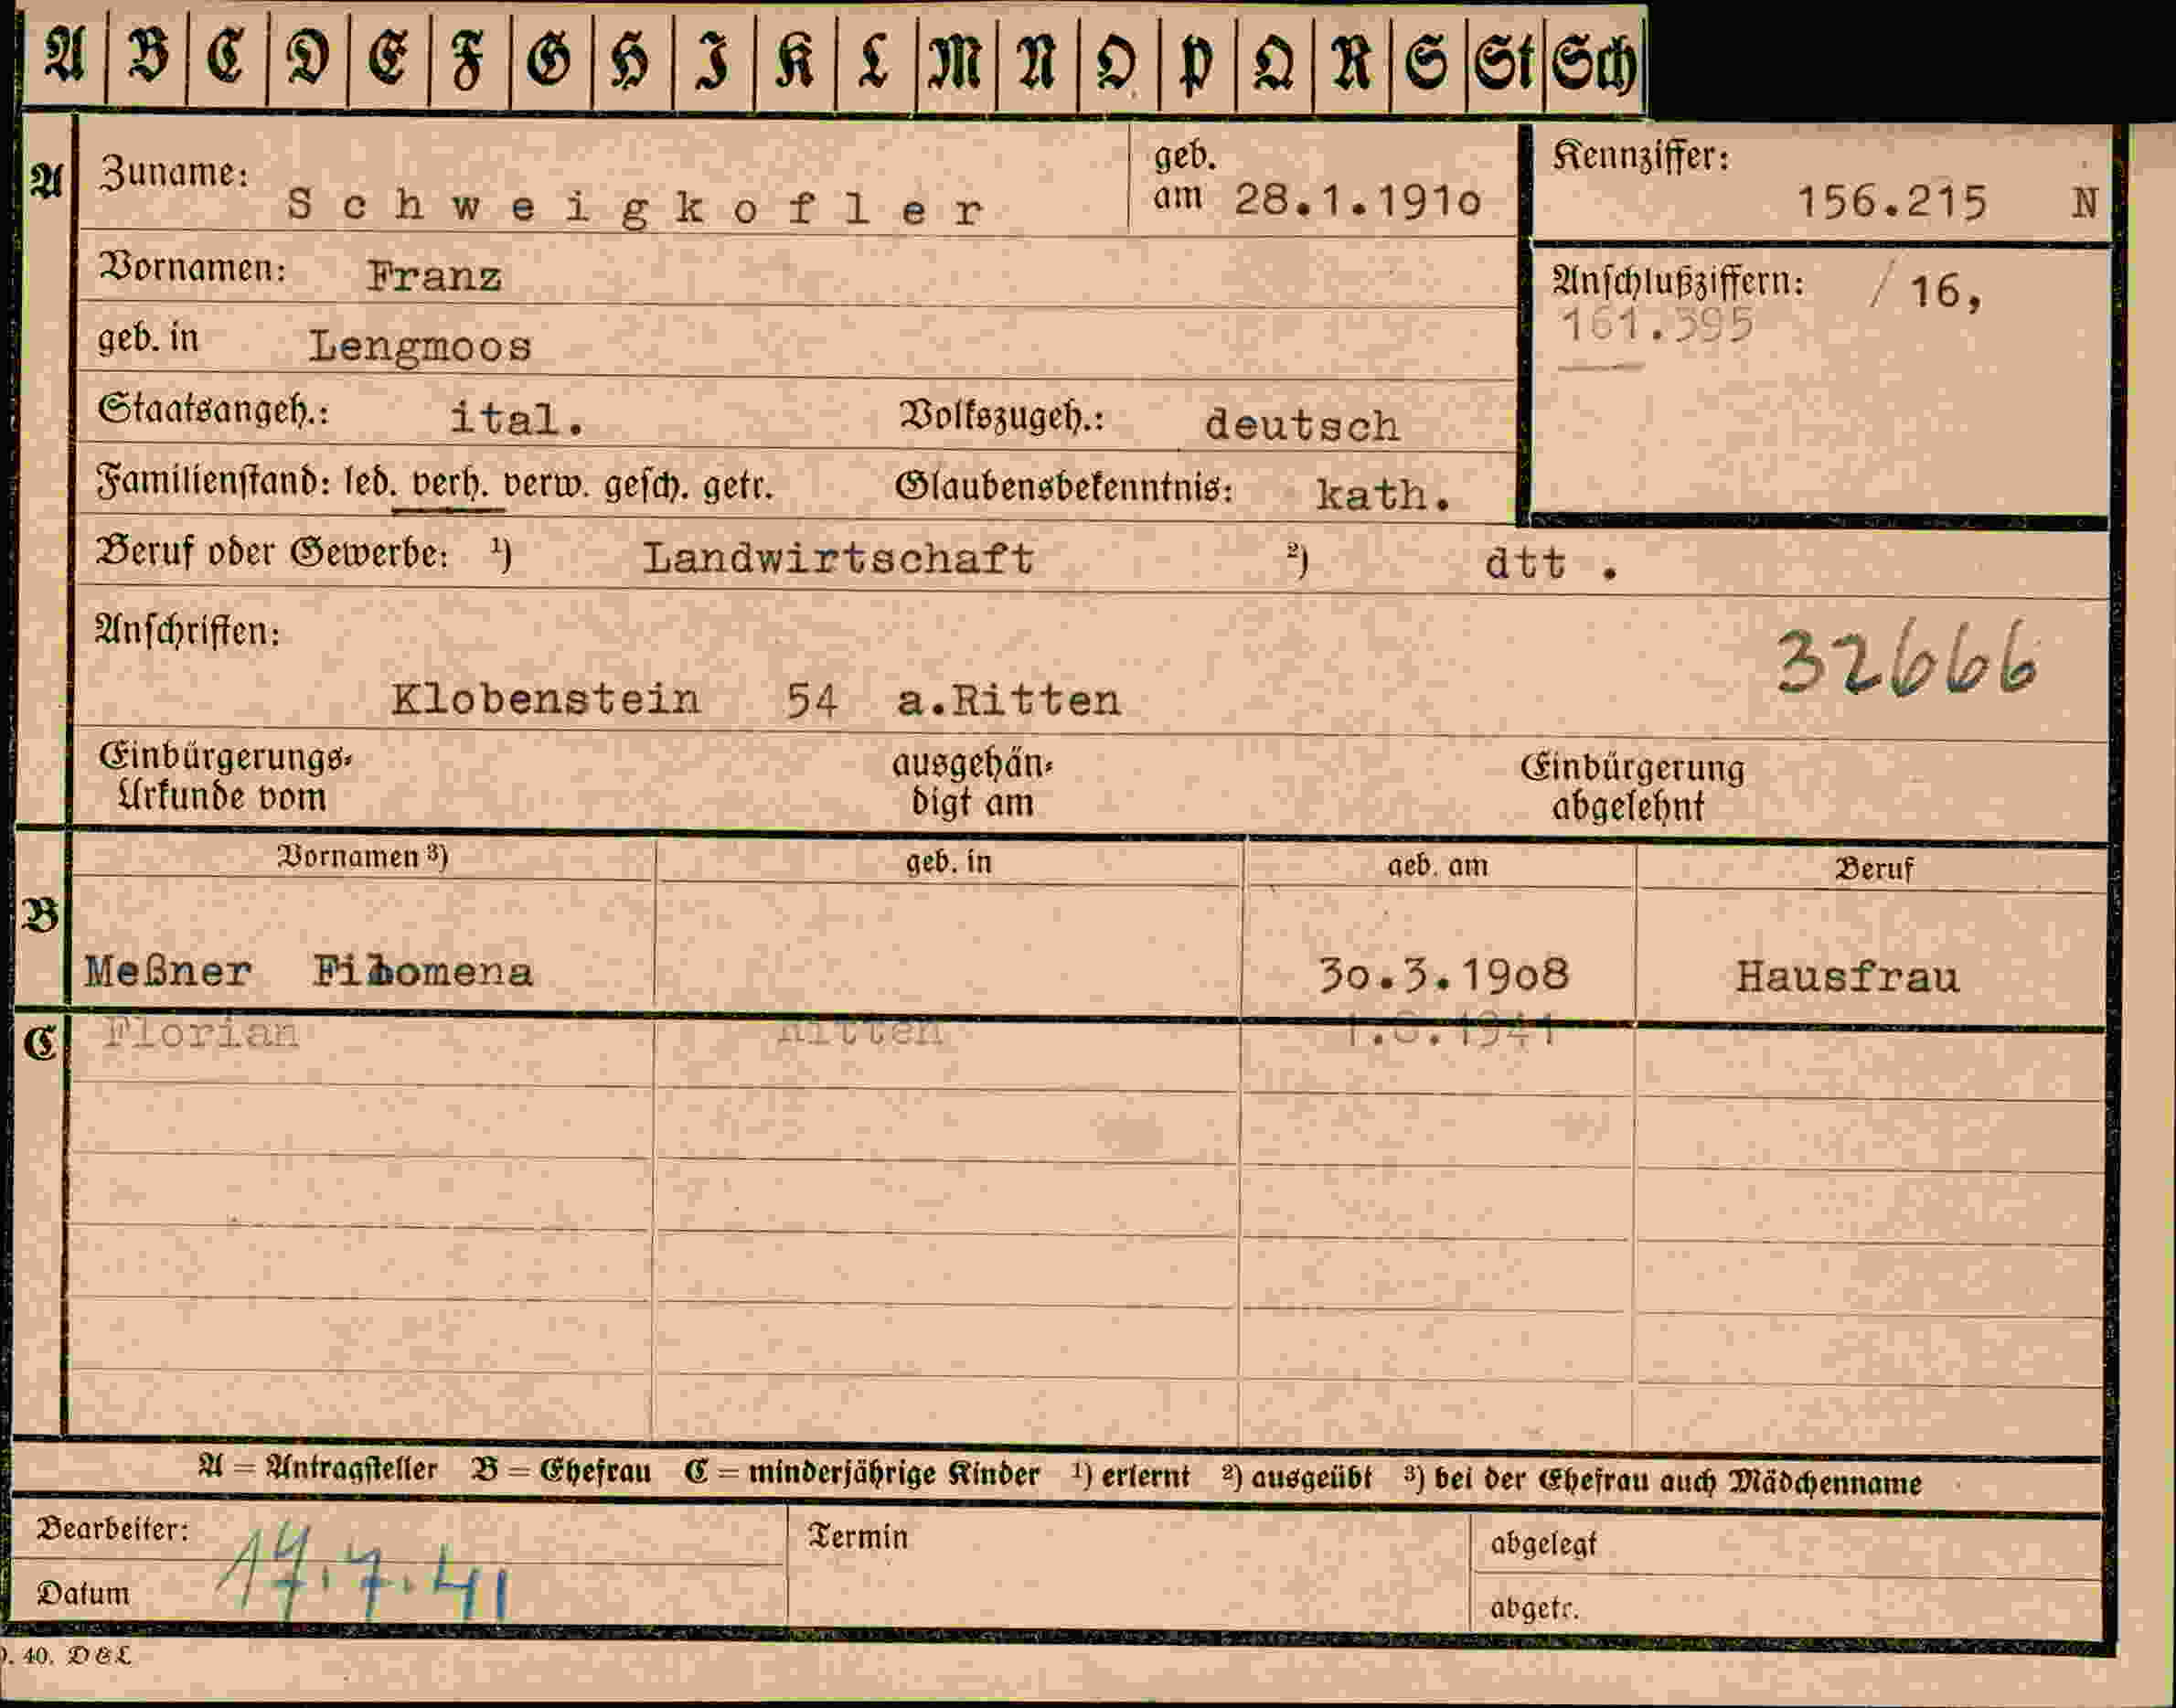 A B C D E F G H I K L M N O P Q R S St Sch
A Zuname: Schweigkofler geb. am 28.1.1910 Kennziffer: 156.215 N
Vornamen: Franz Anschlußziffern: / 16,
geb. in Lengmoos 161.395
Staatsangeh.: ital. Volkszugeh.: deutsch
Familienstand: led. verh. verw. gesch. getr. Glaubensbekenntnis: kath.
Beruf oder Gewerbe: ¹) Landwirtschaft ²) dtt .
Anschriften: 32666
Klobenstein 54 a.Ritten
Einbürgerungs- ausgehän- Einbürgerung
Urkunde vom digt am abgelehnt
Vornamen ³) geb. in geb. am Beruf
B
Meßner Filomena 30.3.1908 Hausfrau
C Florian Ritten
A = Antragsteller B = Ehefrau C = minderjährige Kinder ¹) erlernt ²) ausgeübt ³) bei der Ehefrau auch Mädchenname
Bearbeiter: Termin abgelegt
17.7.41
Datum abgetr.
40. D&L